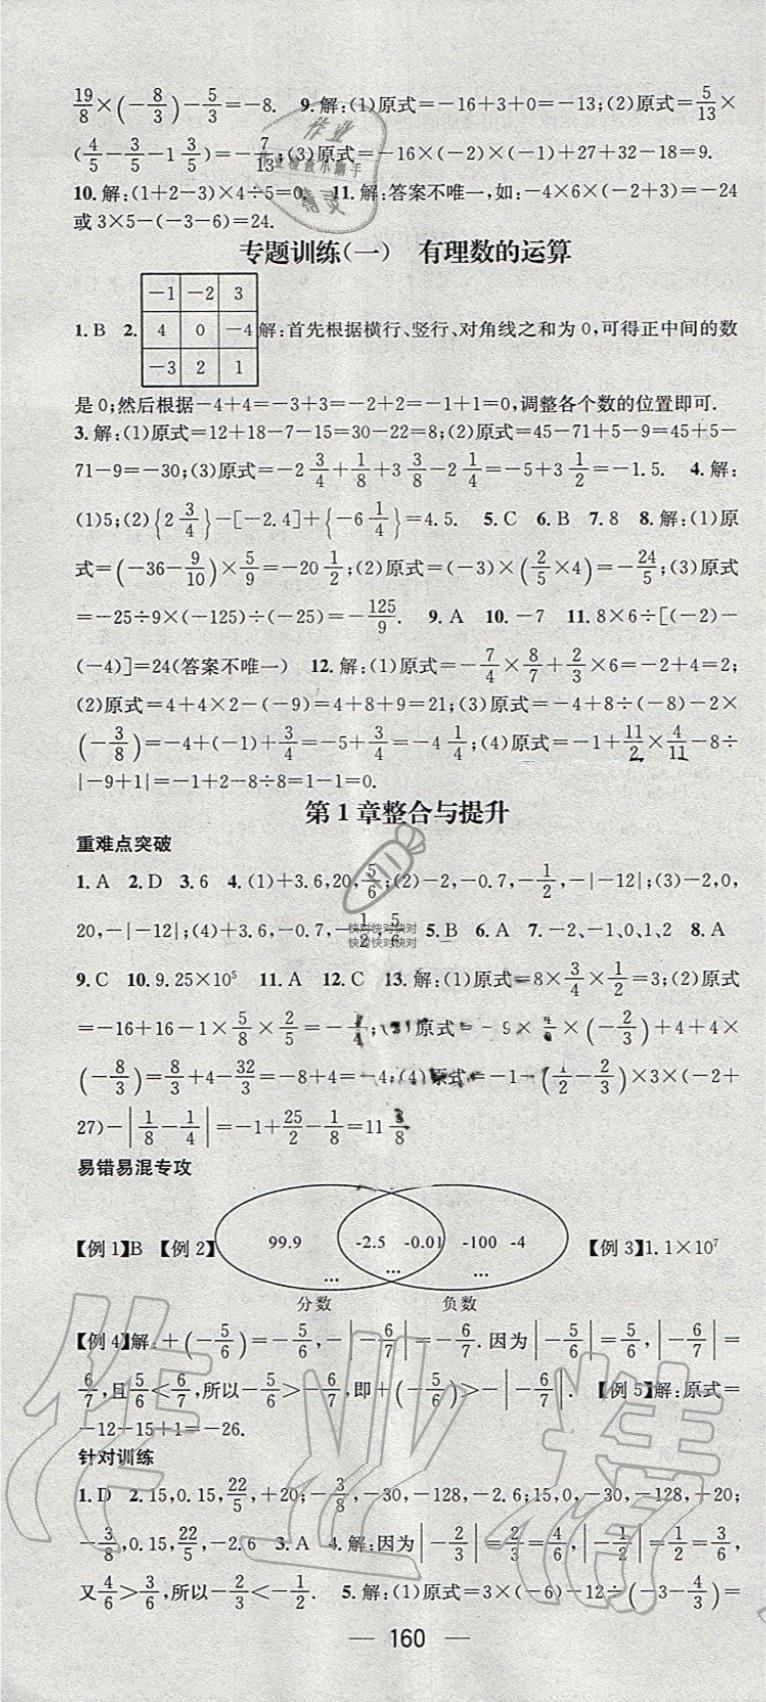 19/8×(-8/3)-5/3=-8. 9.解:(1)原式=-16+3+0=-13;(2)原式=5/13×
(4/5-3/5-1 3/5)=-7/13;(3)原式=-16×(-2)×(-1)+27+32-18=9.
10.解:(1+2-3)×4÷5=0. 11.解:答案不唯一,如:-4×6×(-2+3)=-24
或3×5-(-3-6)=24.
专题训练(一) 有理数的运算
-1 -2 3
1.B 2. 4 0 -4 解:首先根据横行、竖行、对角线之和为0,可得正中间的数
-3 2 1
是0;然后根据-4+4=-3+3=-2+2=-1+1=0,调整各个数的位置即可.
3.解:(1)原式=12+18-7-15=30-22=8;(2)原式=45-71+5-9=45+5-
71-9=-30;(3)原式=-2 3/4+1/8+3 3/8-2 1/4=-5+3 1/2=-1.5. 4.解:
(1)5;(2){2 3/4}-[-2.4]+{-6 1/4}=4.5. 5.C 6.B 7.8 8.解:(1)原
式=(-36-9/10)×5/9=-20 1/2;(2)原式=(-3)×(2/5×4)=-24/5;(3)原式
=-25÷9×(-125)÷(-25)=-125/9. 9.A 10.-7 11.8×6÷[(-2)-
(-4)]=24(答案不唯一) 12.解:(1)原式=-7/4×8/7+2/3×6=-2+4=2;
(2)原式=4+4×2-(-9)=4+8+9=21;(3)原式=-4+8÷(-8)-2×
(-3/8)=-4+(-1)+3/4=-5+3/4=-4 1/4;(4)原式=-1+11/2×4/11-8÷
|-9+1|=-1+2-8÷8=1-1=0.
第1章整合与提升
重难点突破
1.A 2.D 3.6 4.(1)+3.6,20,5/6;(2)-2,-0.7,-1/2,-|-12|;(3)-2,0,
20,-|-12|;(4)+3.6,-0.7,-1/2,5/6 5.B 6.A 7.-2、-1、0、1、2 8.A
9.C 10.9.25×10⁵ 11.A 12.C 13.解:(1)原式=8×3/4×1/2=3;(2)原式
=-16+16-1×5/8×2/5=-1/4;(3)原式=-9×4/9×(-2/3)+4+4×
(-8/3)=8/3+4-32/3=-8+4=-4;(4)原式=-1-(1/2-2/3)×3×(-2+
27)-|1/8-1/4|=-1+25/2-1/8=11 3/8
易错易混专攻
【例1】B 【例2】 99.9 -2.5 -0.01 -100 -4 【例3】1.1×10⁷
… … …
分数 负数
【例4】解:+(-5/6)=-5/6,-|-6/7|=-6/7.因为|-5/6|=5/6,|-6/7|=
6/7,且5/6<6/7,所以-5/6>-6/7,即+(-5/6)>-|-6/7|. 【例5】解:原式=
-12-15+1=-26.
针对训练
1.D 2.15,0.15,22/5,+20;-3/8,-30,-128,-2.6;15,0,-30,-128,+20;
-3/8,0.15,22/5,-2.6 3.A 4.解:因为|-2/3|=2/3=4/6,|-1/2|=1/2=3/6,
又4/6>3/6,所以-2/3<-1/2. 5.解:(1)原式=3×(-6)-12÷(-3-4/3)=
— 160 —